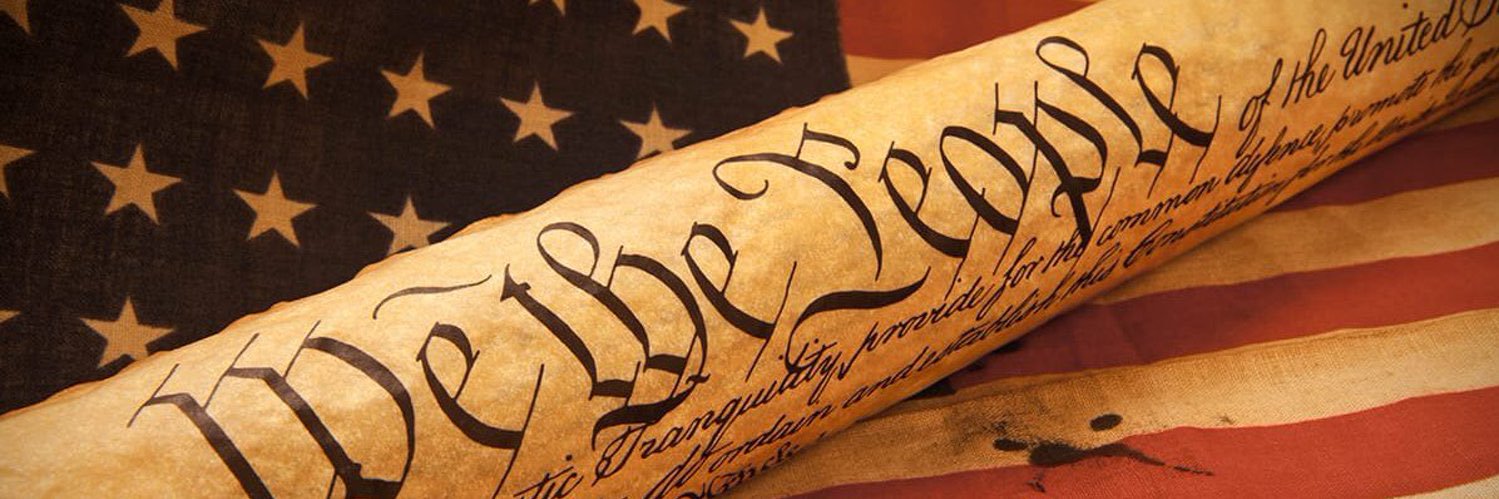 We the People of the United
tic Tranquility, provide for the common defence, promote the
do ordain and establish this Constitution for the